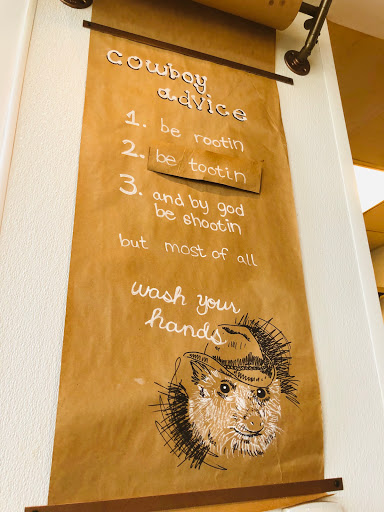 cowboy
advice
1. be rootin
2. be tootin
3. and by god
be shootin
but most of all
wash your
hands